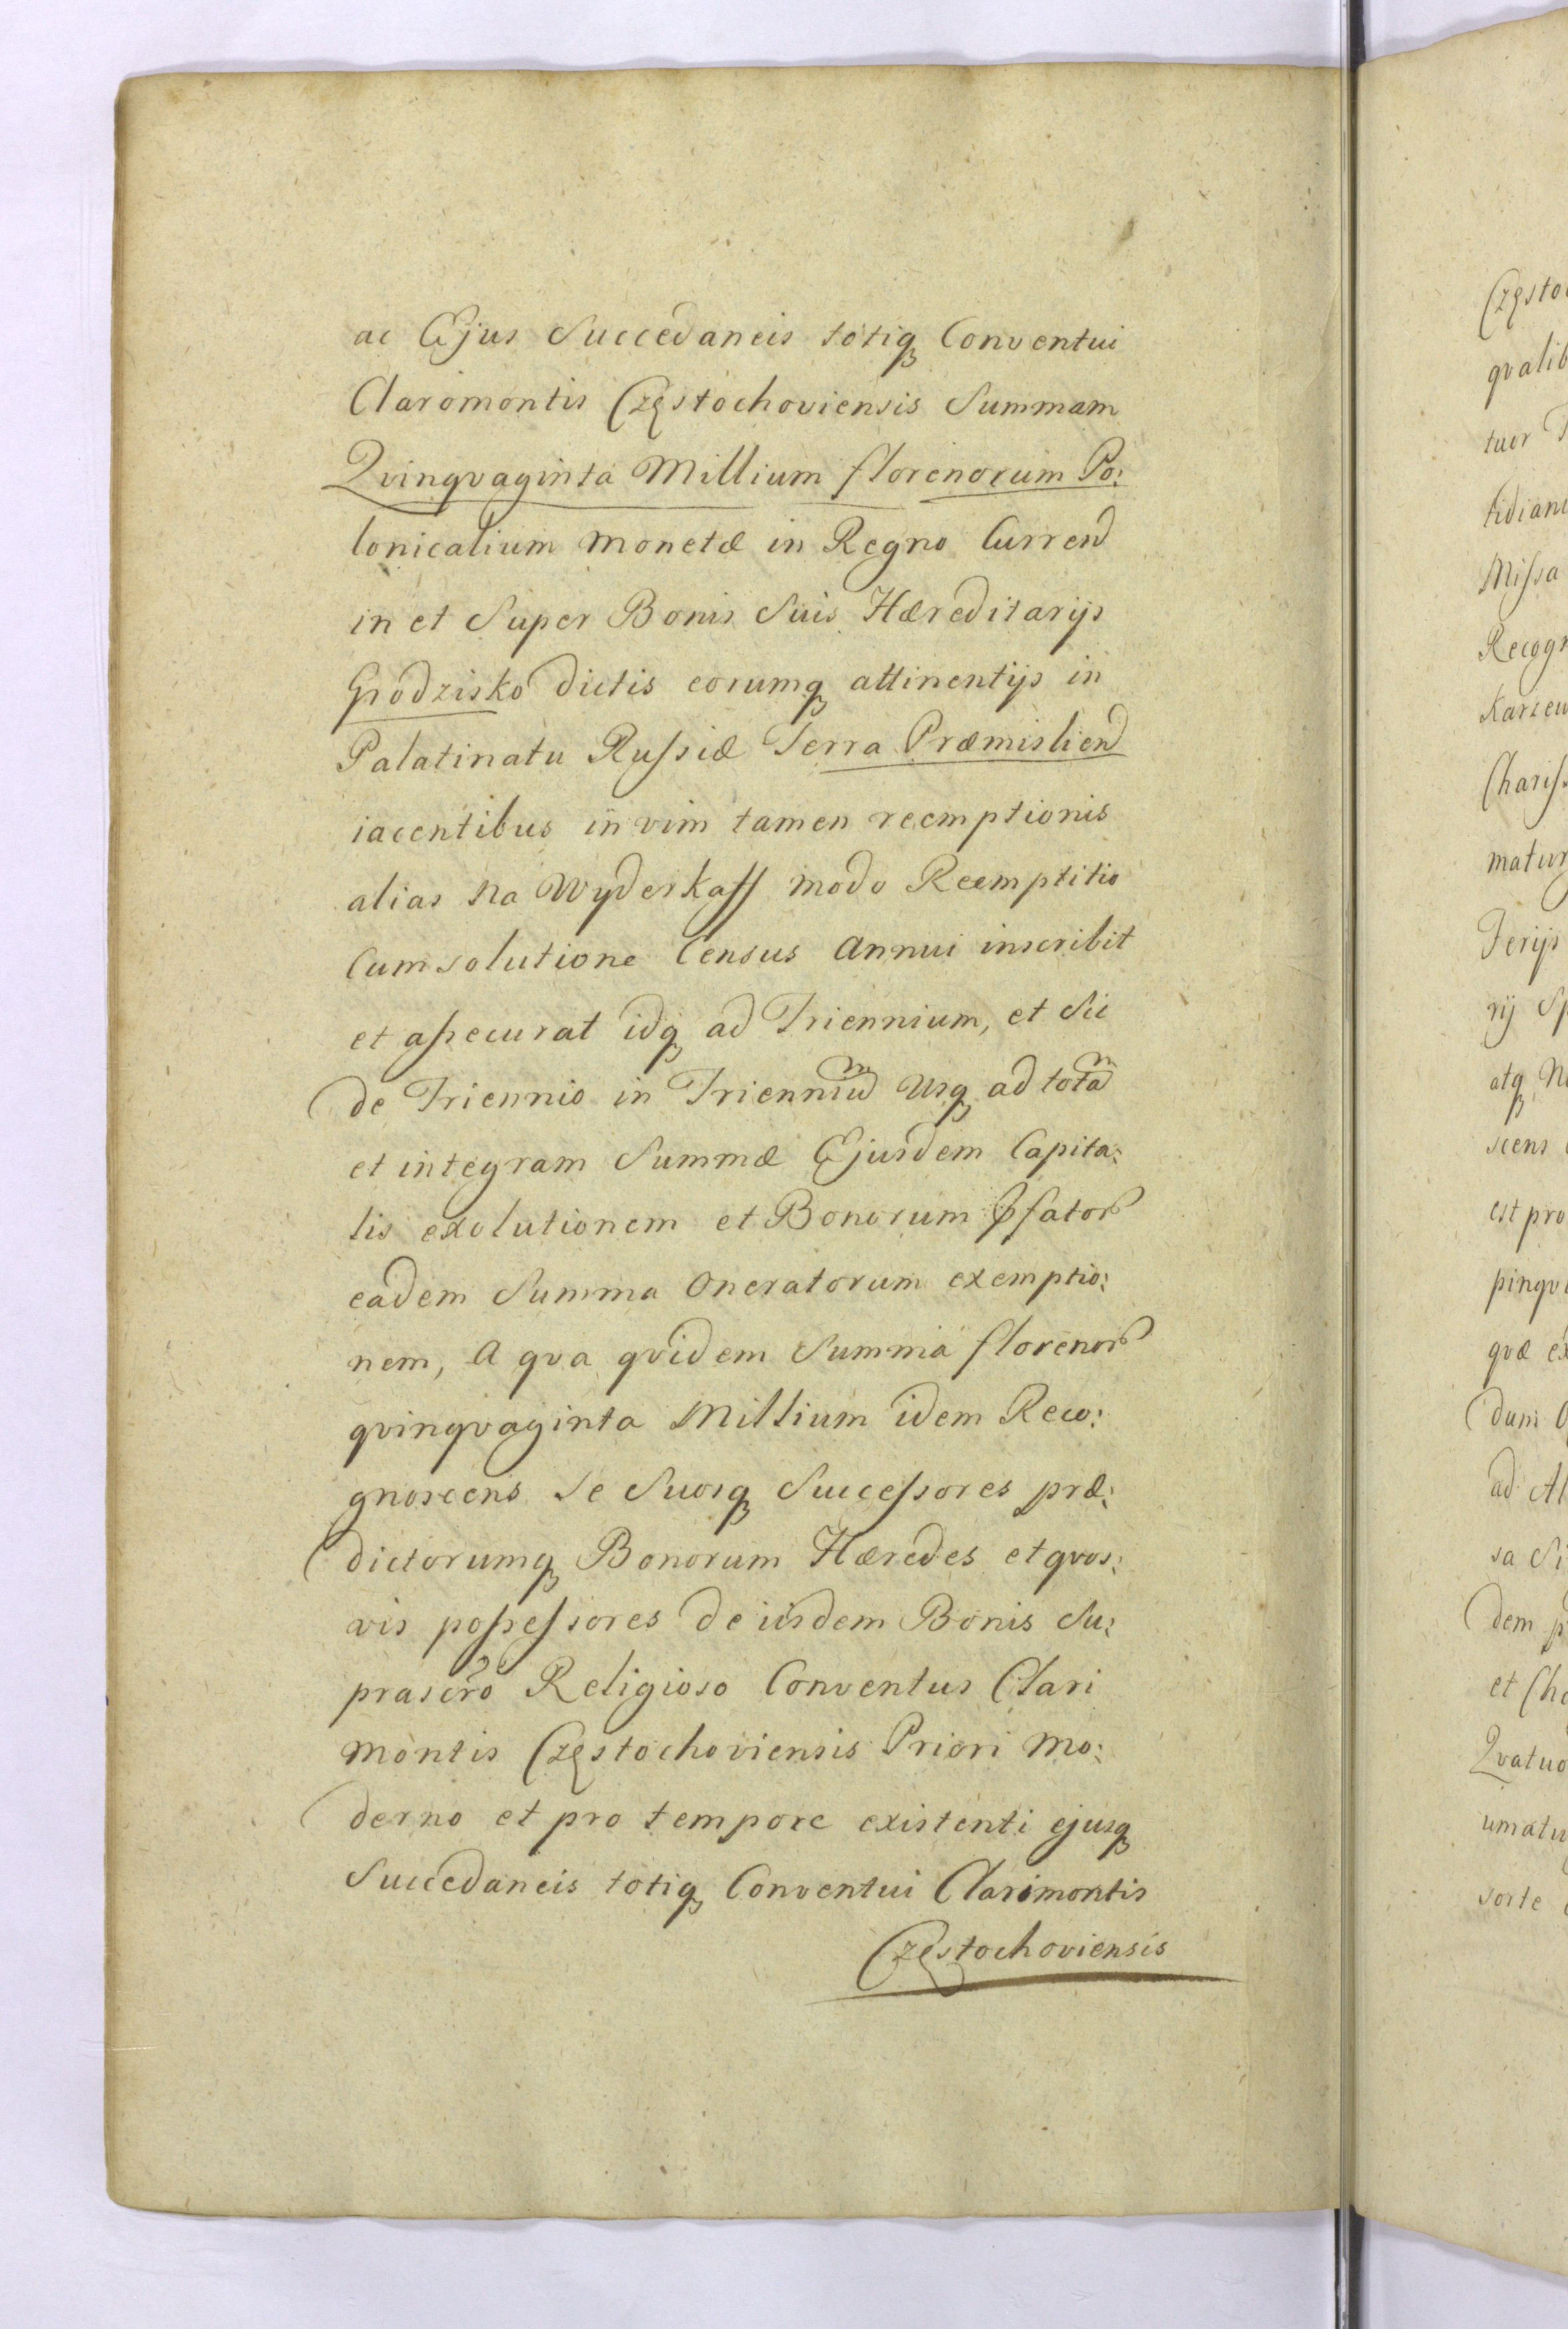 ac Ejus Succedaneis totiq Conventui
Claromontis Częstochoviensis Summam
Qvinqvaginta Millium florenorum Po:
lonicalium monetæ in Regno Currend
in et Super Bonis Suis Hæreditarijs
Grodzisko dictis eorumq attinentijs in
Palatinatu Russiæ Terra Præmisliend
iacentibus in vim tamen reemptionis
alias na Wyderkaff modo Reemptitio
Cum solutione Census annui inscribit
et assecurat idq ad Triennium, et Sic
de Triennio in Trienniu͠m Usq ad tota͠m
et integram Summæ Ejusdem Capita:
lis exolutionem et Bonorum p̃fator
eadem Summa Oneratorum exemptio:
nem, a qva qvidem Summa florenor
qvinqvaginta Millium idem Reco:
gnoscens Se Suosq Successores præ:
dictorumq Bonorum Hæredes et qvos:
vis possessores de iisdem Bonis Su:
prascr̃o Religioso Conventus Clari
montis Częstochoviensis Priori Mo:
derno et pro tempore existenti ejusq
Succedaneis totiq Conventui Clarimontis
Częstochoviensis
Często
qvalib
tuor
tidian
Missa
Recogn
Karsew
Chariss
matur
Ferijs
rij Sp
atq N
scens
est pro
pinqv
qvæ ex
dum
ad Al
sa Si
dem p
et Cho
Qvatuo
umatu
sorte